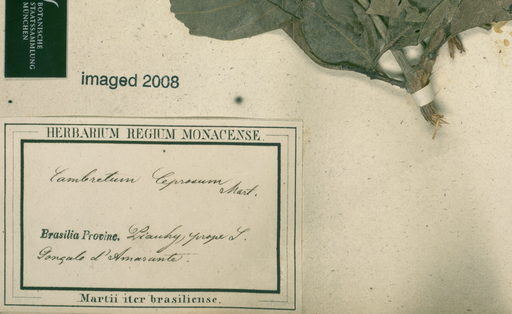 BOTANISCHE
STAATSSAMMLUNG
MÜNCHEN
imaged 2008
HERBARIUM REGIUM MONACENSE.
Combretum leprosum
Mart.
Brasilia Provinc. Piauhy, prope S.
Gonçalo d'Amarante.
Martii iter brasiliense.